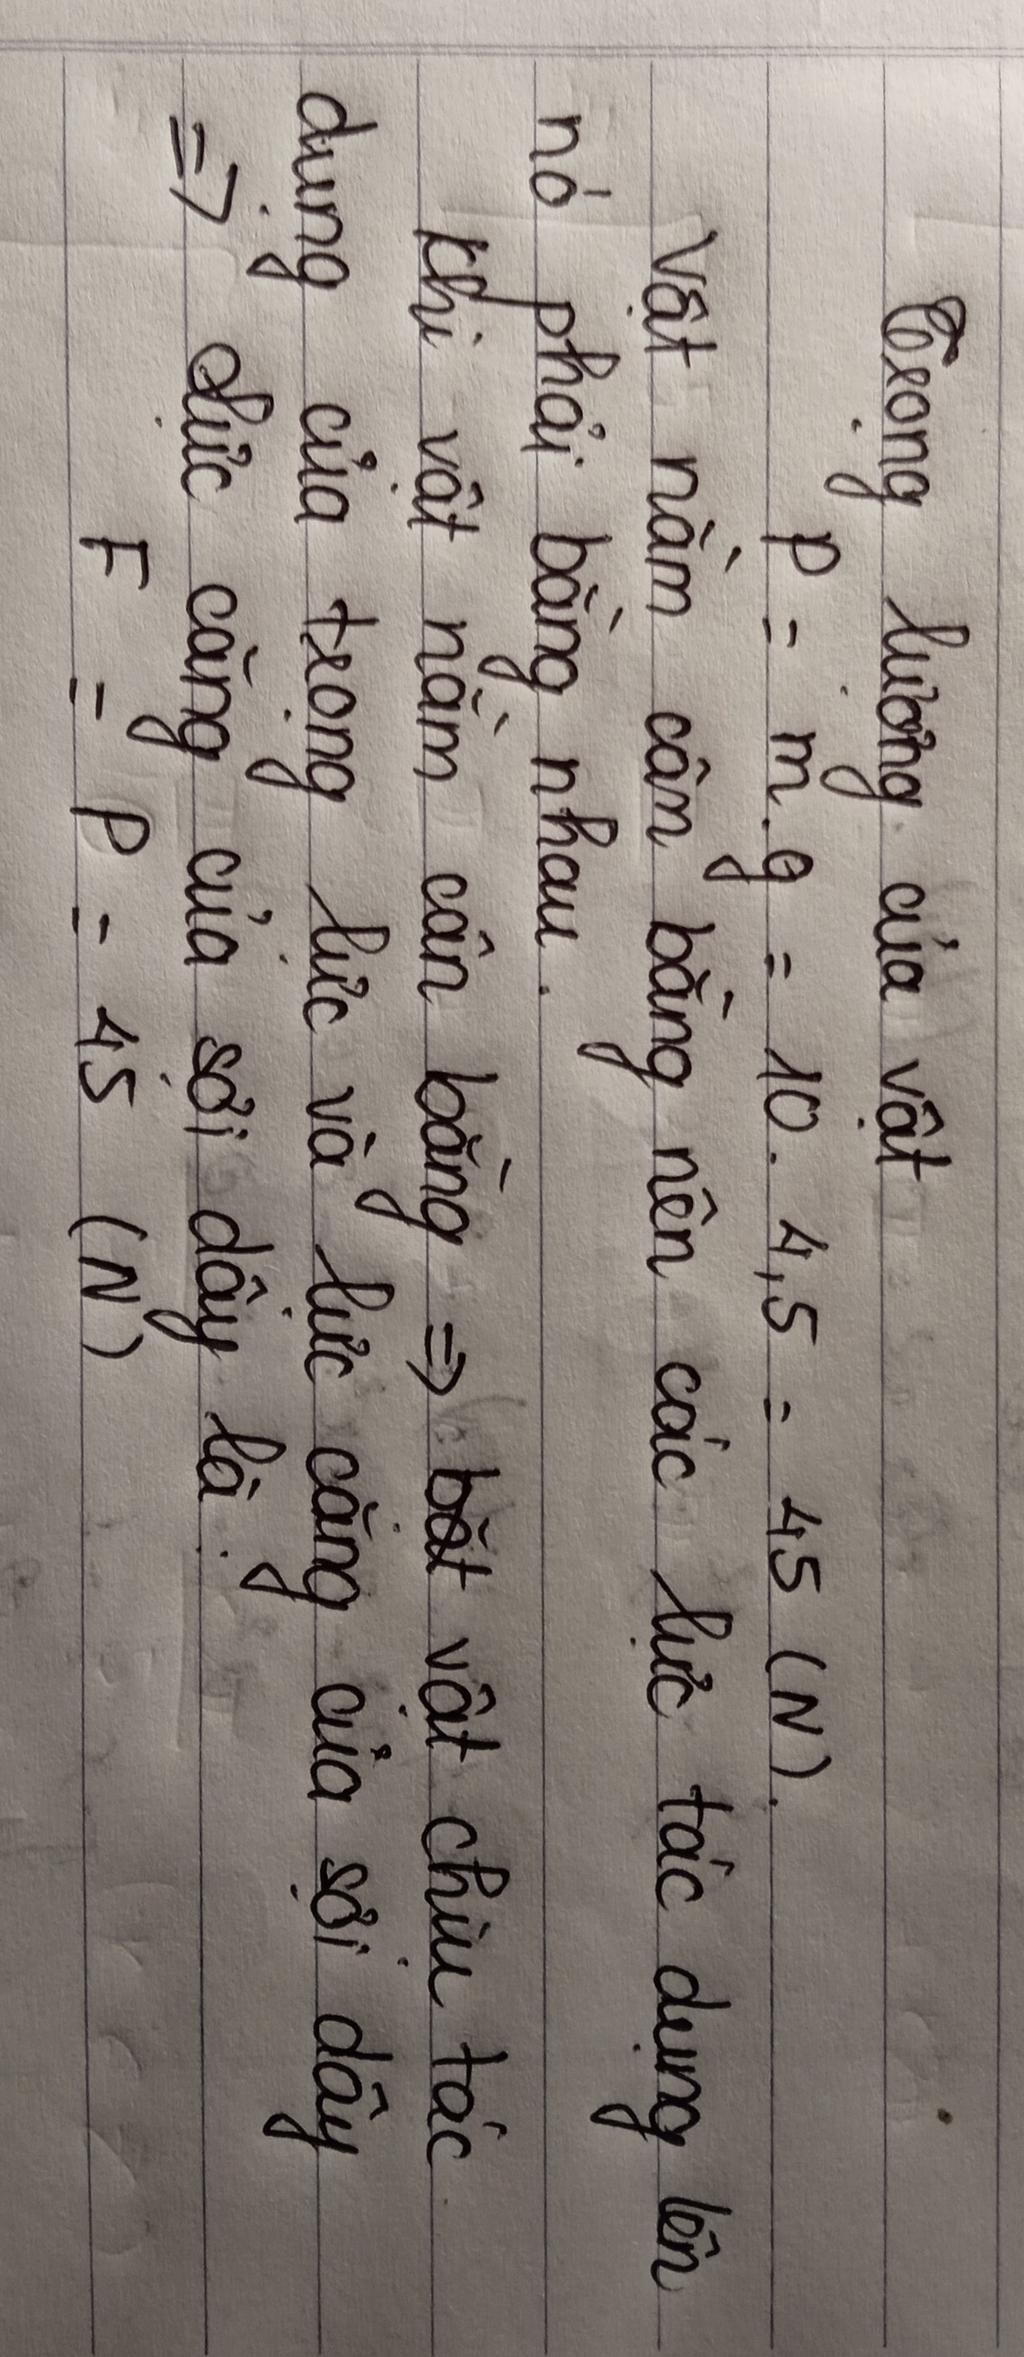 Trọng lượng của vật
P = m.g = 10. 4,5 = 45 (N).
Vật nằm cân bằng nên các lực tác dụng lên
nó phải bằng nhau.
Khi vật nằm cân bằng => vật chịu tác
dụng của trọng lực và lực căng của sợi dây
=> Lực căng của sợi dây là:
F = P = 45 (N)